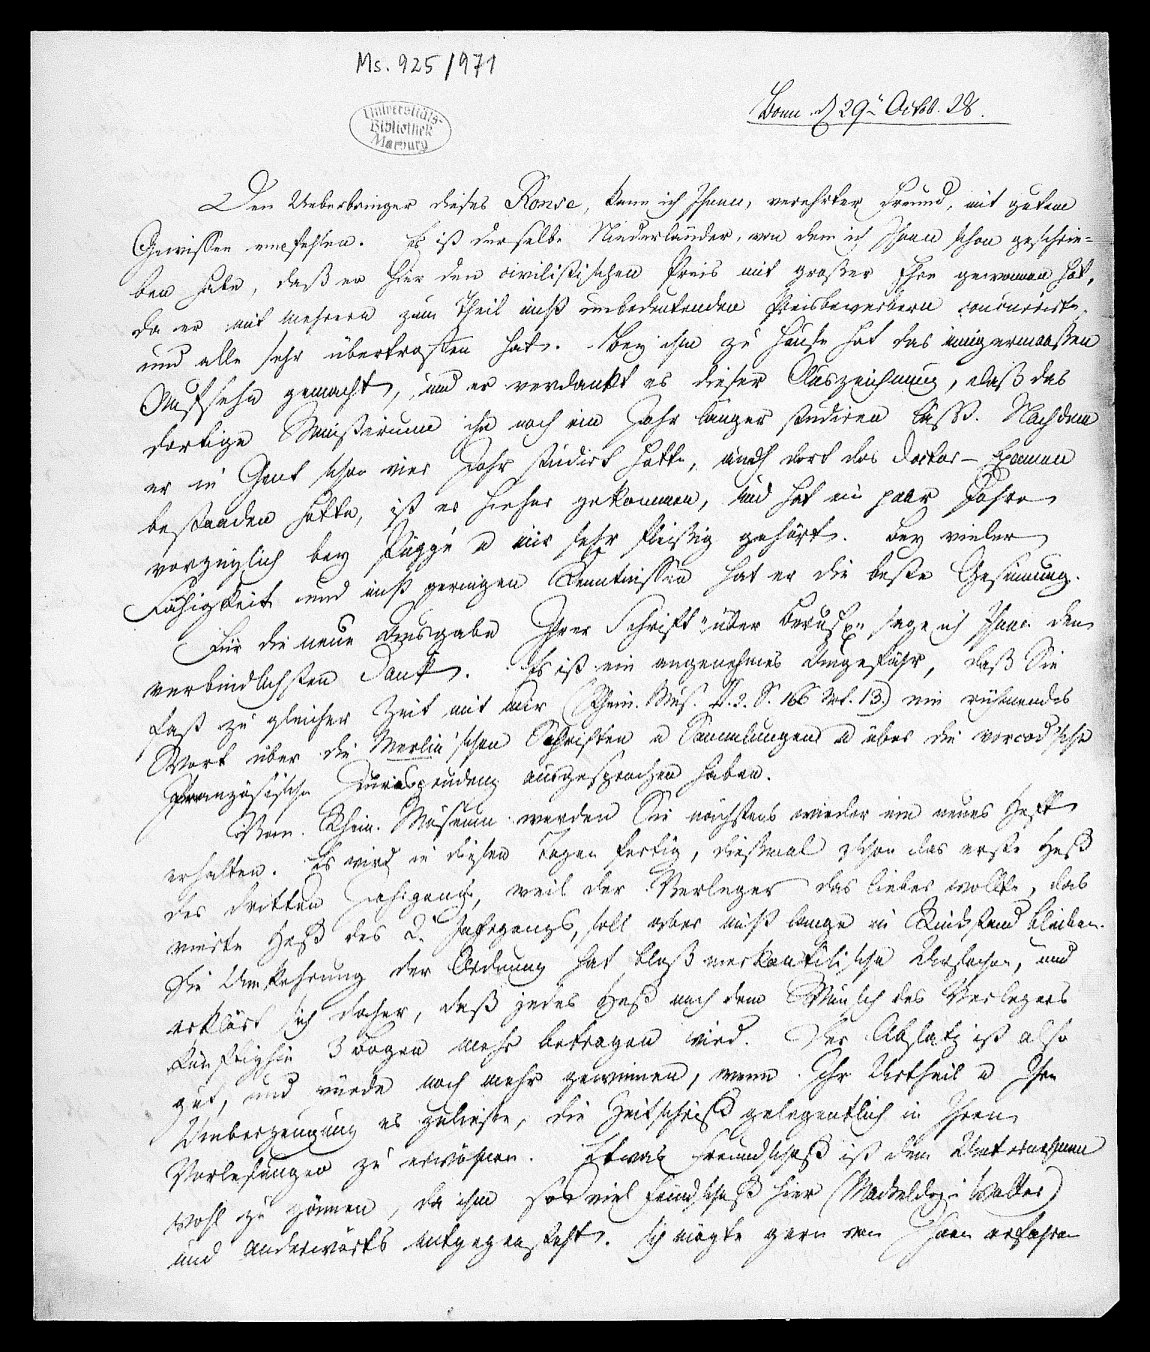 Ms. 925/971
Universitäts-
Bibliothek
Marburg
Bonn d 29t Octob. 28.
Den Ueberbringer dieses Ronse, kann ich Ihnen, verehrter Freund, mit gutem
Gewissen empfehlen. Es ist derselbe Niederländer, von dem ich Ihnen schon geschrie-
ben habe, daß er hier den civilistischen Preis mit großer Ehre gewonnen hat,
da er mit mehreren zum Theil nicht unbedeutenden Preisbewerbern concurrirte,
und alle sehr übertroffen hat. Bey ihm zu Hause hat das einigermaaßen
Aufsehn gemacht, und er verdankt es dieser Auszeichnung, daß das
dortige Ministerium ihn noch ein Jahr länger studiren läßt. Nachdem
er in Gent schon vier Jahr studirt hatte, auch dort das Doctor-Examen
bestanden hatte, ist er hieher gekommen, und hat ein paar Jahre
vorzüglich bey Puggé u mir sehr fleißig gehört. Bey vieler
Fähigkeit und nicht geringen Kenntnissen hat er die beste Gesinnung.
Für die neue Ausgabe Ihrer Schrift über sage ich Ihnen den
verbindlichsten Dank. Es ist ein angenehmes Ungefähr, daß Sie
fast zu gleicher Zeit mit mir (Rhein. Mus. II. 2. S. 166 Not. 13.) ein rühmendes
Wort über die Merlin'schen Schriften u Sammlungen u über die vorcod'sche
Französische Jurisprudenz ausgesprochen haben.
Vom Rhein. Museum werden Sie nächstens wieder ein neues Heft
erhalten. Es wird in diesen Tagen fertig, dießmal schon das erste Heft
des dritten Jahrgangs, weil der Verleger das lieber wollte, das
vierte Heft des 2. Jahrgangs, soll aber nicht lange im Rückstand bleiben.
Die Umkehrung der Ordnung hat bloß merkantilische Ursachen, und
erklärt sich daher, daß jedes Heft nach dem Wunsch des Verlegers
künftighin 3 Bogen mehr betragen wird. Der Absatz ist also
gut, und würde noch mehr gewinnen, wenn Ihr Urtheil u Ihre
Ueberzeugung es zuließe, die Zeitschrift gelegentlich in Ihren
Vorlesungen zu erwähnen. Etwas Freundschaft ist dem Unternehmen
wohl zu gönnen, da ihm so viel Feindschaft hier (Mackeldey u Walter)
und anderwärts entgegensteht. Ich mögte gern von Ihnen erfahren